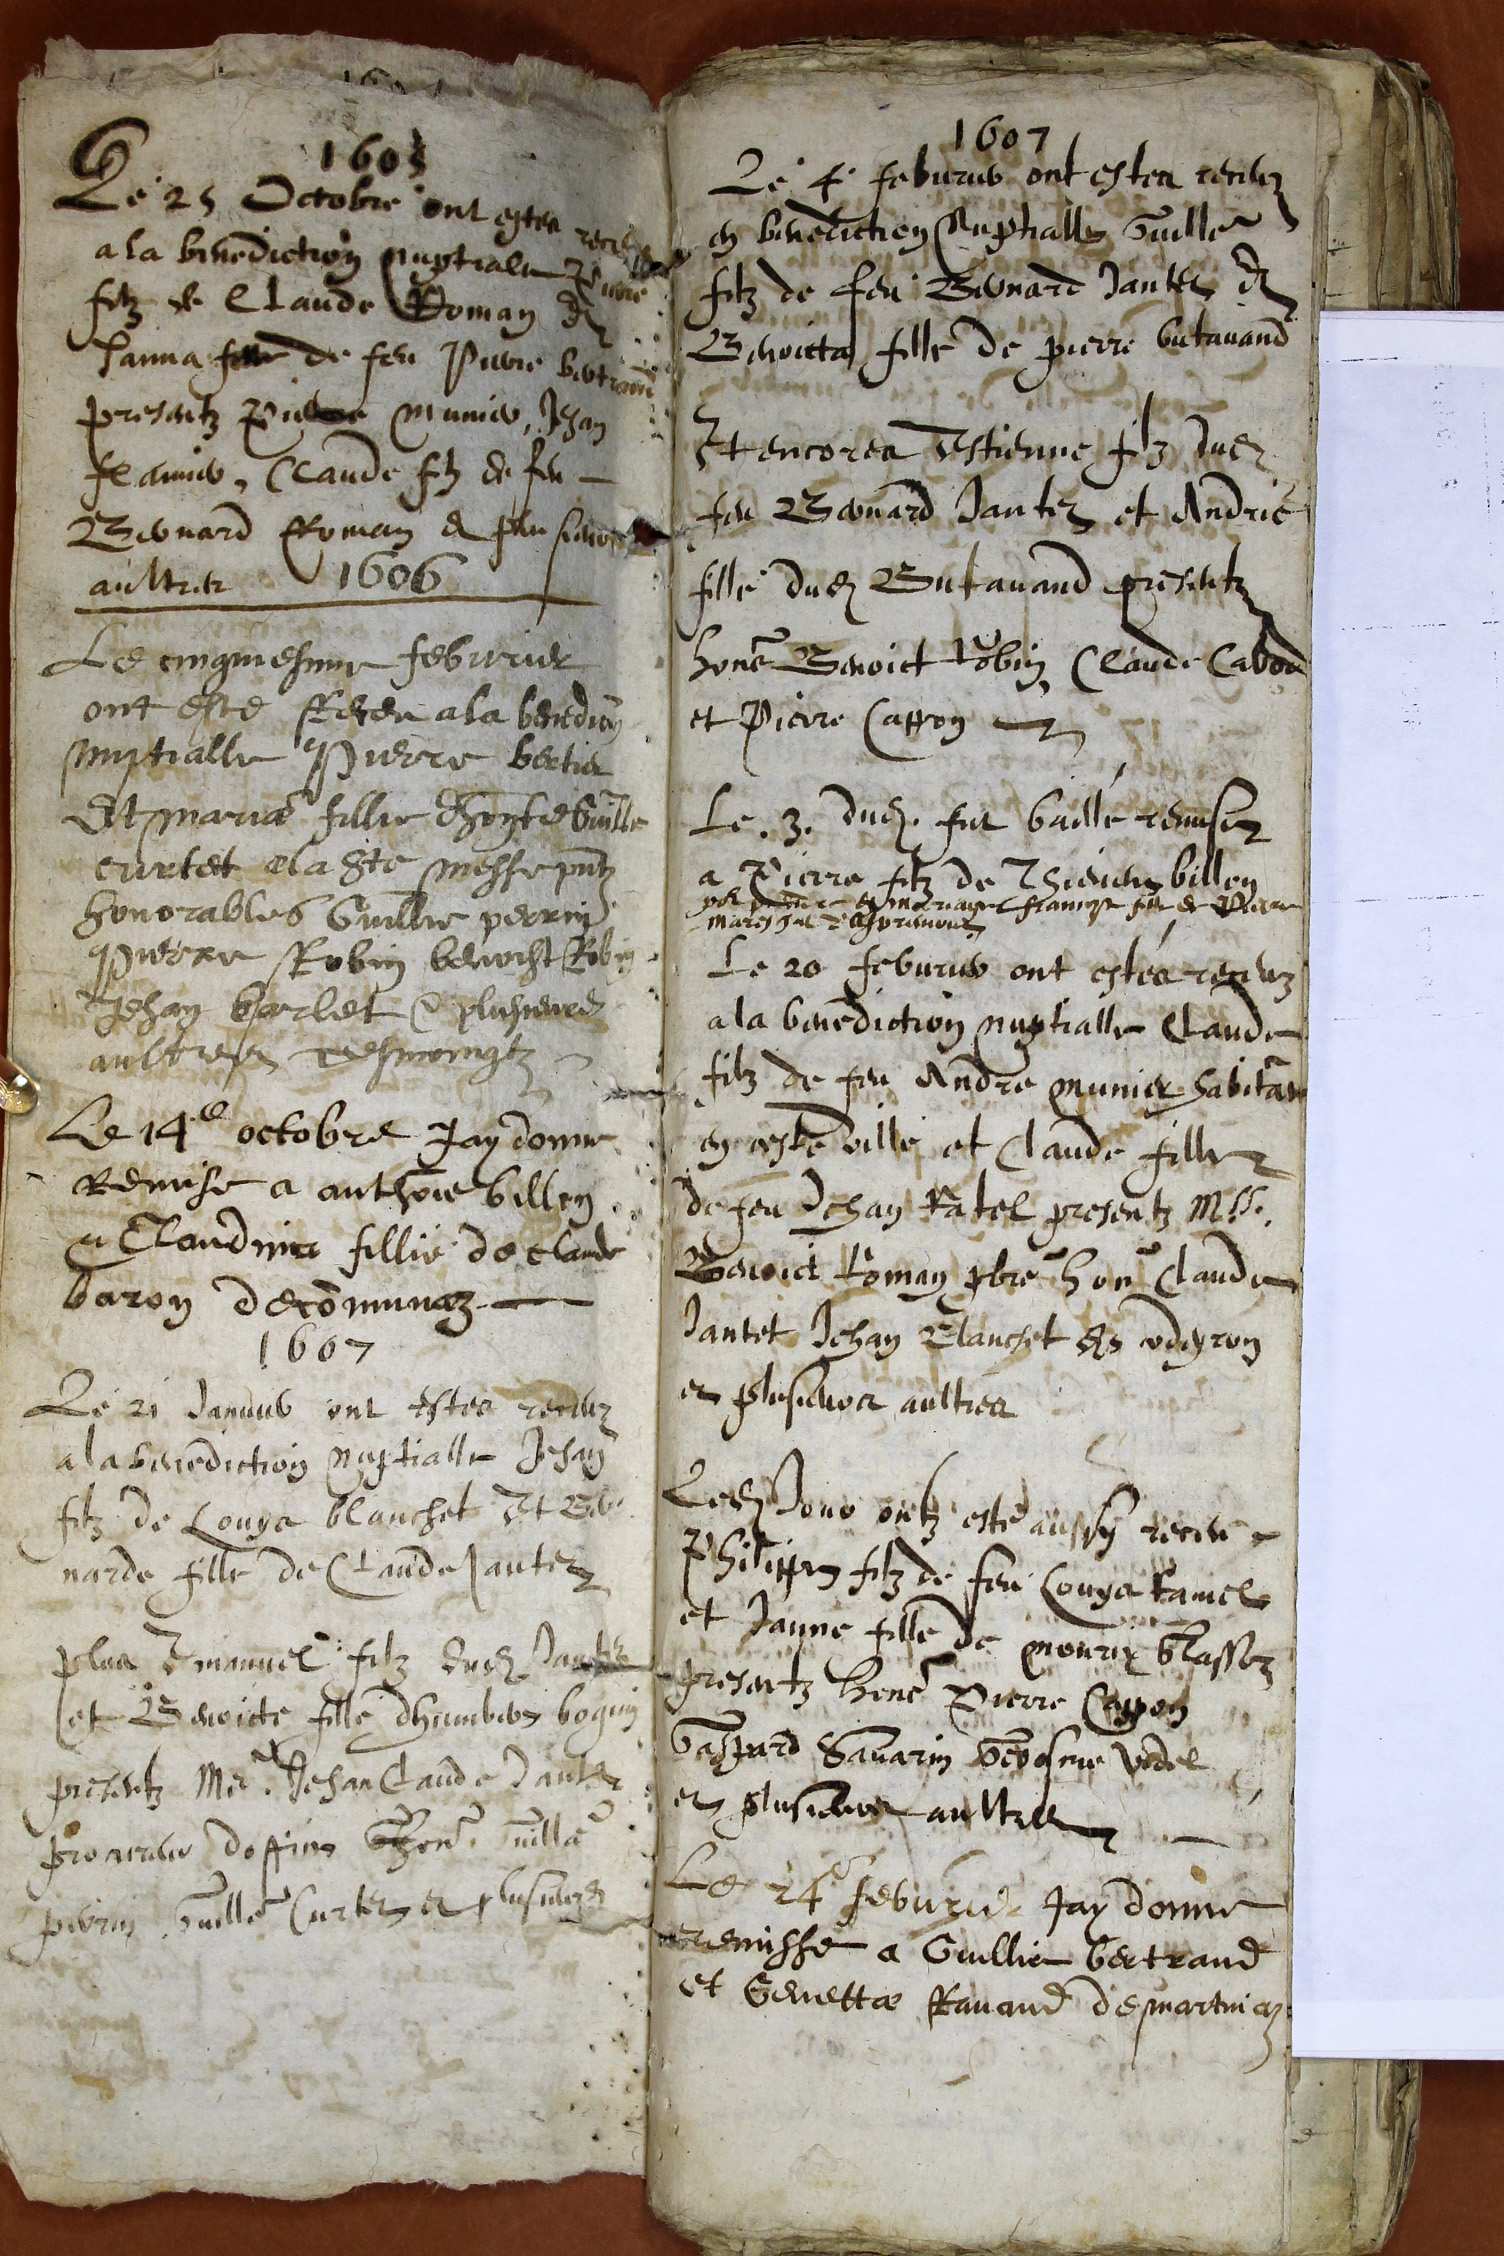 1605
Le 25 Octobre ont estes
a la benediction nuptiale Pierre
filz de Claude Roman et
Janna fille de feu Pierre bertrand
presentz Pierre Munier, Jehan
Claude filz de feu
Bernard Roman et plusieurs
aultres 1606
Le cinquiesme febvrier
ont este Receu a la benedion
nuptialle Pierre bertier
Et maria fillie dhoñte Guille
curtet a la ste messe pntz
honorables Guillie perrin
Pierre Robin benoist Robin
Jehan barlet & plusieurs
aultres tesmoingtz
Le 14e octobre Jay donne
Remise a anthoie billon
a Claudina fillie de claude
baron de comunaz
1607
Le 21 Janvier ont estes receuz
a la benediction nuptialle Jehan
filz de Louys blanchet Et Ber
narde fille de Claude Jantet
plus Emanuel filz dudt Jantet
et Benoicte fille dhumbert boguin
presentz Me Jehan Claude Jantet
procureur doffice honē Guillē
perrin Guillē Curtet et plusieurs
1607
Le 4 feburier ont estes receuz
en benediction Nuptialle Guille
filz de feu Bernard Jantet et
Benoicta fille de pierre butavand
Et encores Estienne filz dudt
feu Bernard Jantet et Andrie
fille dudt Butavand presentz
honē Benoict Robin, Claude Cabod
et Pierre Cappon
Le .3. dudt. fut baillé remise
a Pierre filz de Thievent billon
mariage francoyse fille de Pierre
Le 20 feburier ont estés receuz
a la benediction nuptialle Claude
filz de feu André munier habitān
en ceste ville et Claude fille
de feu Jehan Ratel presentz Mss.
Benoict Roman pbrē honē Claude
Jantet Jehan Blanchet
et plusieurs aultres
Ledt Jour ontz esté aussy receu
Philippes filz de feu Louys Ramel
et Janne fille de mouriz blassoz
presentz honē Pierre Cappon
Gaspard Savarin Gerosme Videl
et plusieurs aultres
Le 24e feburier Jay donne
remisse a Guillie bertrand
et Genetta Ravand de martniaz